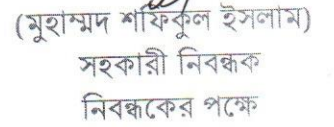 (মুহাম্মদ শফিকুল ইসলাম)
সহকারী নিবন্ধক
নিবন্ধকের পক্ষে